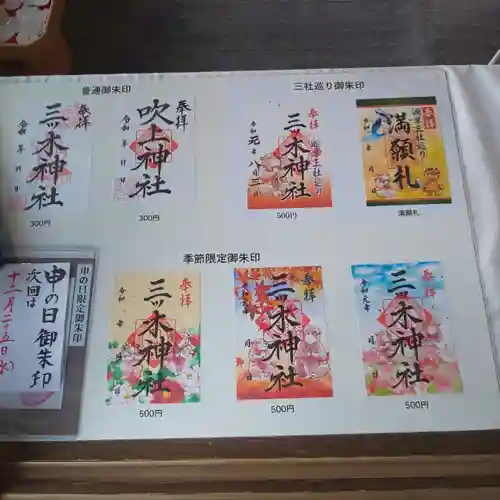 普通御朱印
三社巡り御朱印
奉拝
三ツ木神社
令和 年 月 日
300円
奉拝
吹上神社
令和 年 月 日
300円
奉拝
三ツ木神社
三社巡り
令和元年八月三日
500円
三社巡り
満願札
満願札
季節限定御朱印
申の日限定御朱印
申の日御朱印
次回は
十二月二十五日(水)
奉拝
三ツ木神社
令和 年 月 日
500円
奉拝
三ツ木神社
500円
奉拝
三ツ木神社
令和元年 月 日
500円